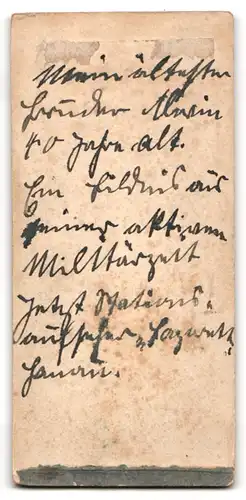 Mein ältester
Bruder Alwin
40 Jahre alt.
Ein Bildnis aus
seiner aktiven
Militärzeit
Jetzt Stations-
aufseher „Lazarett“
Hanau.